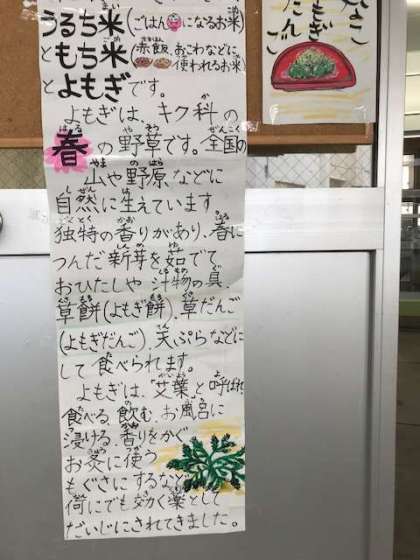 うるち米(ごはんになるお米)
ともち米(赤飯、おこわなどに、使われるお米)
とよもぎです。
よもぎは、キク科の
春の野草です。全国の
山や野原などに
自然に生えています
独特の香りがあり、春に
つんだ新芽を茹でて
おひたしや汁物の具、
草餅(よもぎ餅)、草だんご
(よもぎだんご)、天ぷらなどに
して食べられます。
よもぎは、「艾葉」と呼ばれ
食べる、飲む、お風呂に
浸ける、香りをかぐ
お灸に使う
もぐさにするなど
何にでも効く薬として
だいじにされてきました。